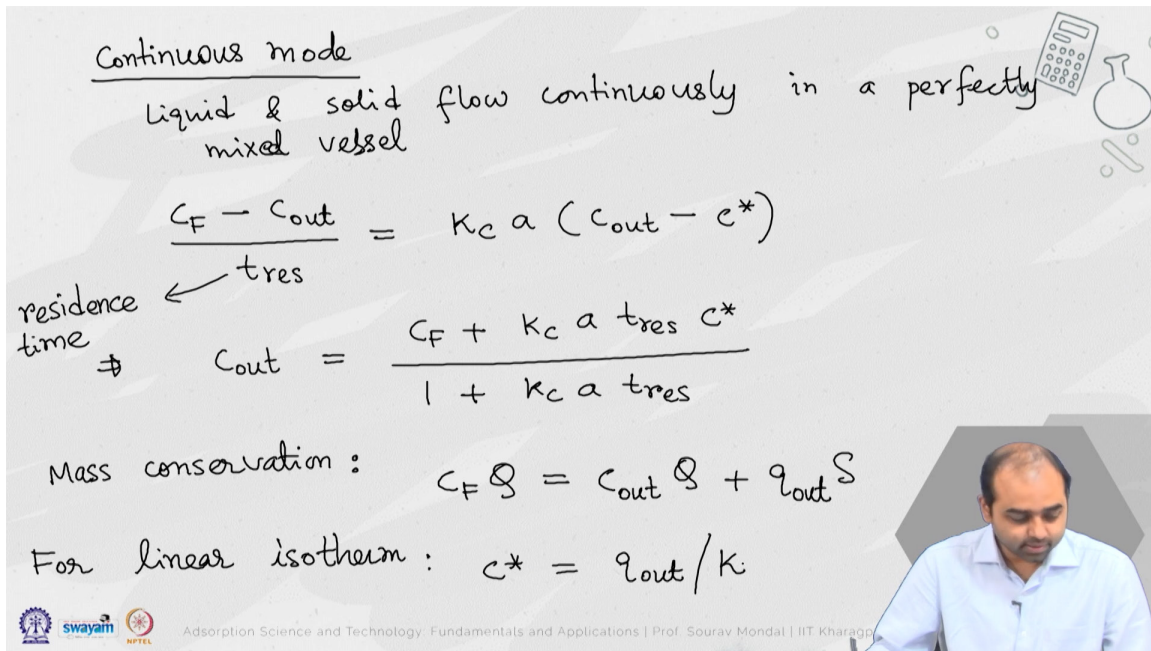 Continuous mode
Liquid & solid flow continuously in a perfectly
mixed vessel
(C_F - C_out) / t_res = K_c a (C_out - c*)
residence
time
⇒ C_out = (C_F + K_c a t_res c*) / (1 + K_c a t_res)
Mass conservation : C_F Q = C_out Q + q_out S
For linear isotherm : c* = q_out / K
swayam
NPTEL
Adsorption Science and Technology: Fundamentals and Applications | Prof. Sourav Mondal | IIT Kharagp